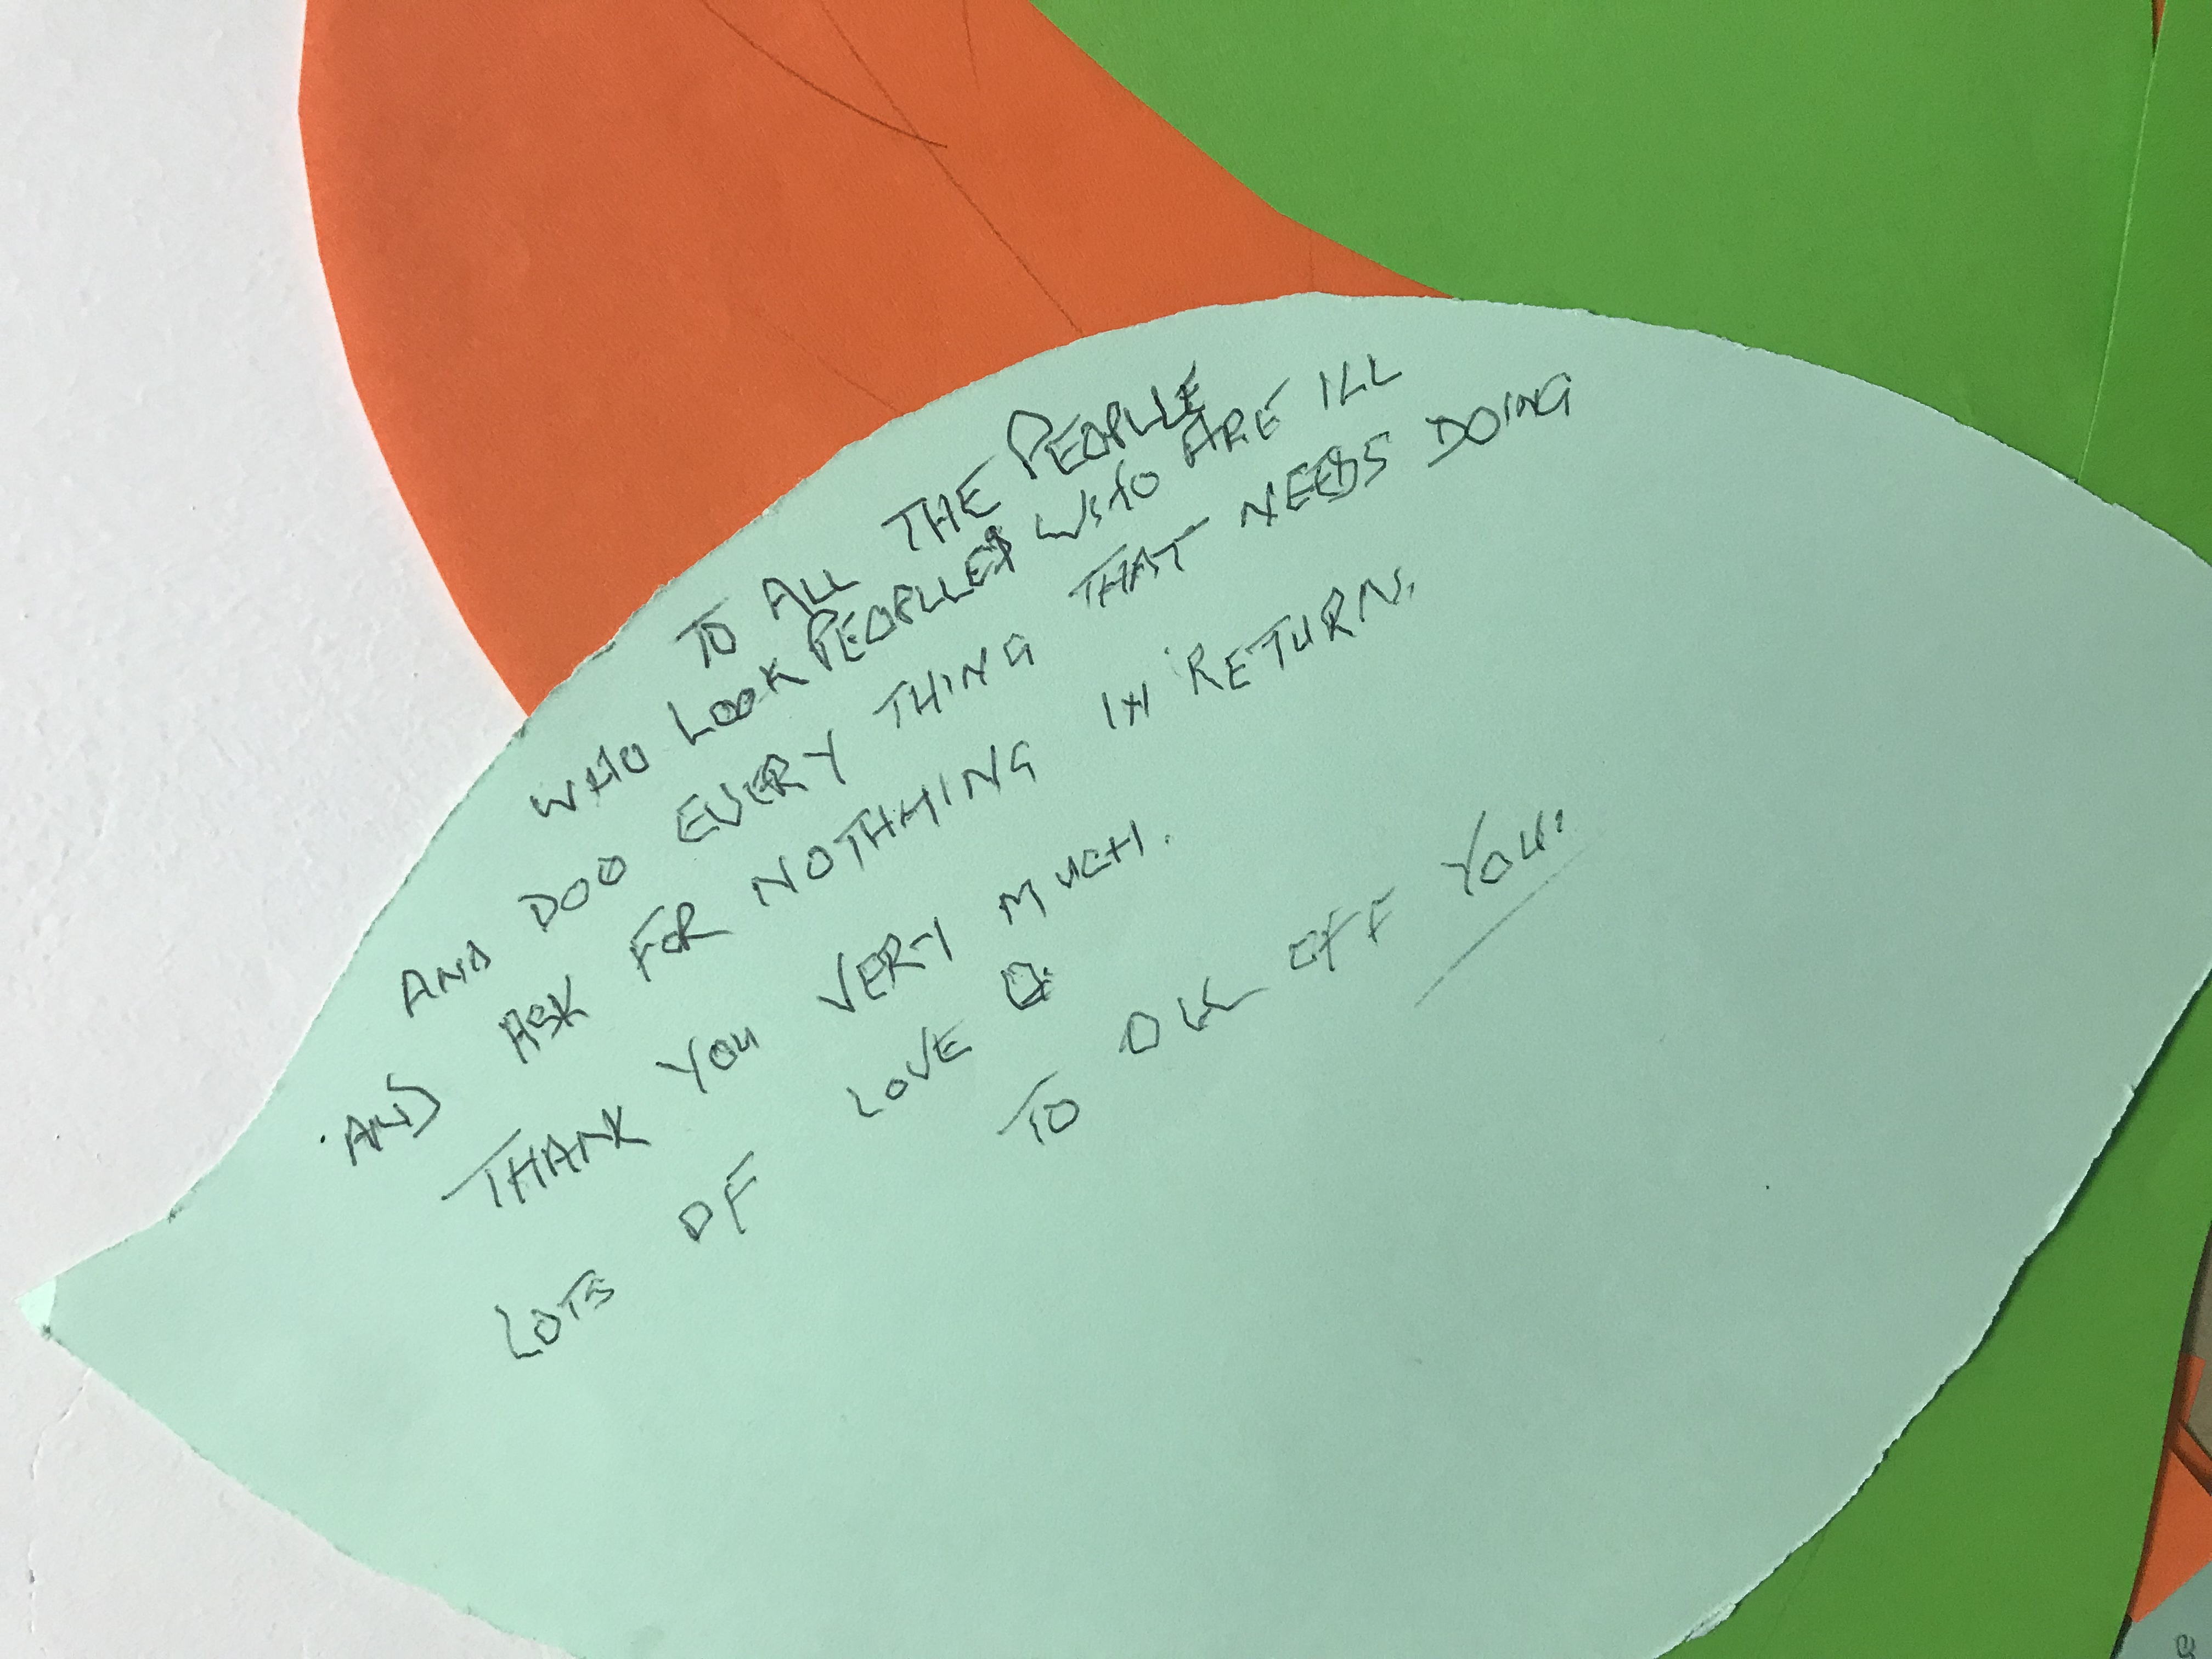 TO ALL THE PEOPLLE
WHO LOOK PEOPLLES WHO ARE ILL
AND DOO EVERY THING THAT NEEDS DOING
AND ASK FOR NOTHHING IN RETURN.
THANK YOU VERY MUCH.
LOTS OF LOVE
TO OLL OFF YOU.